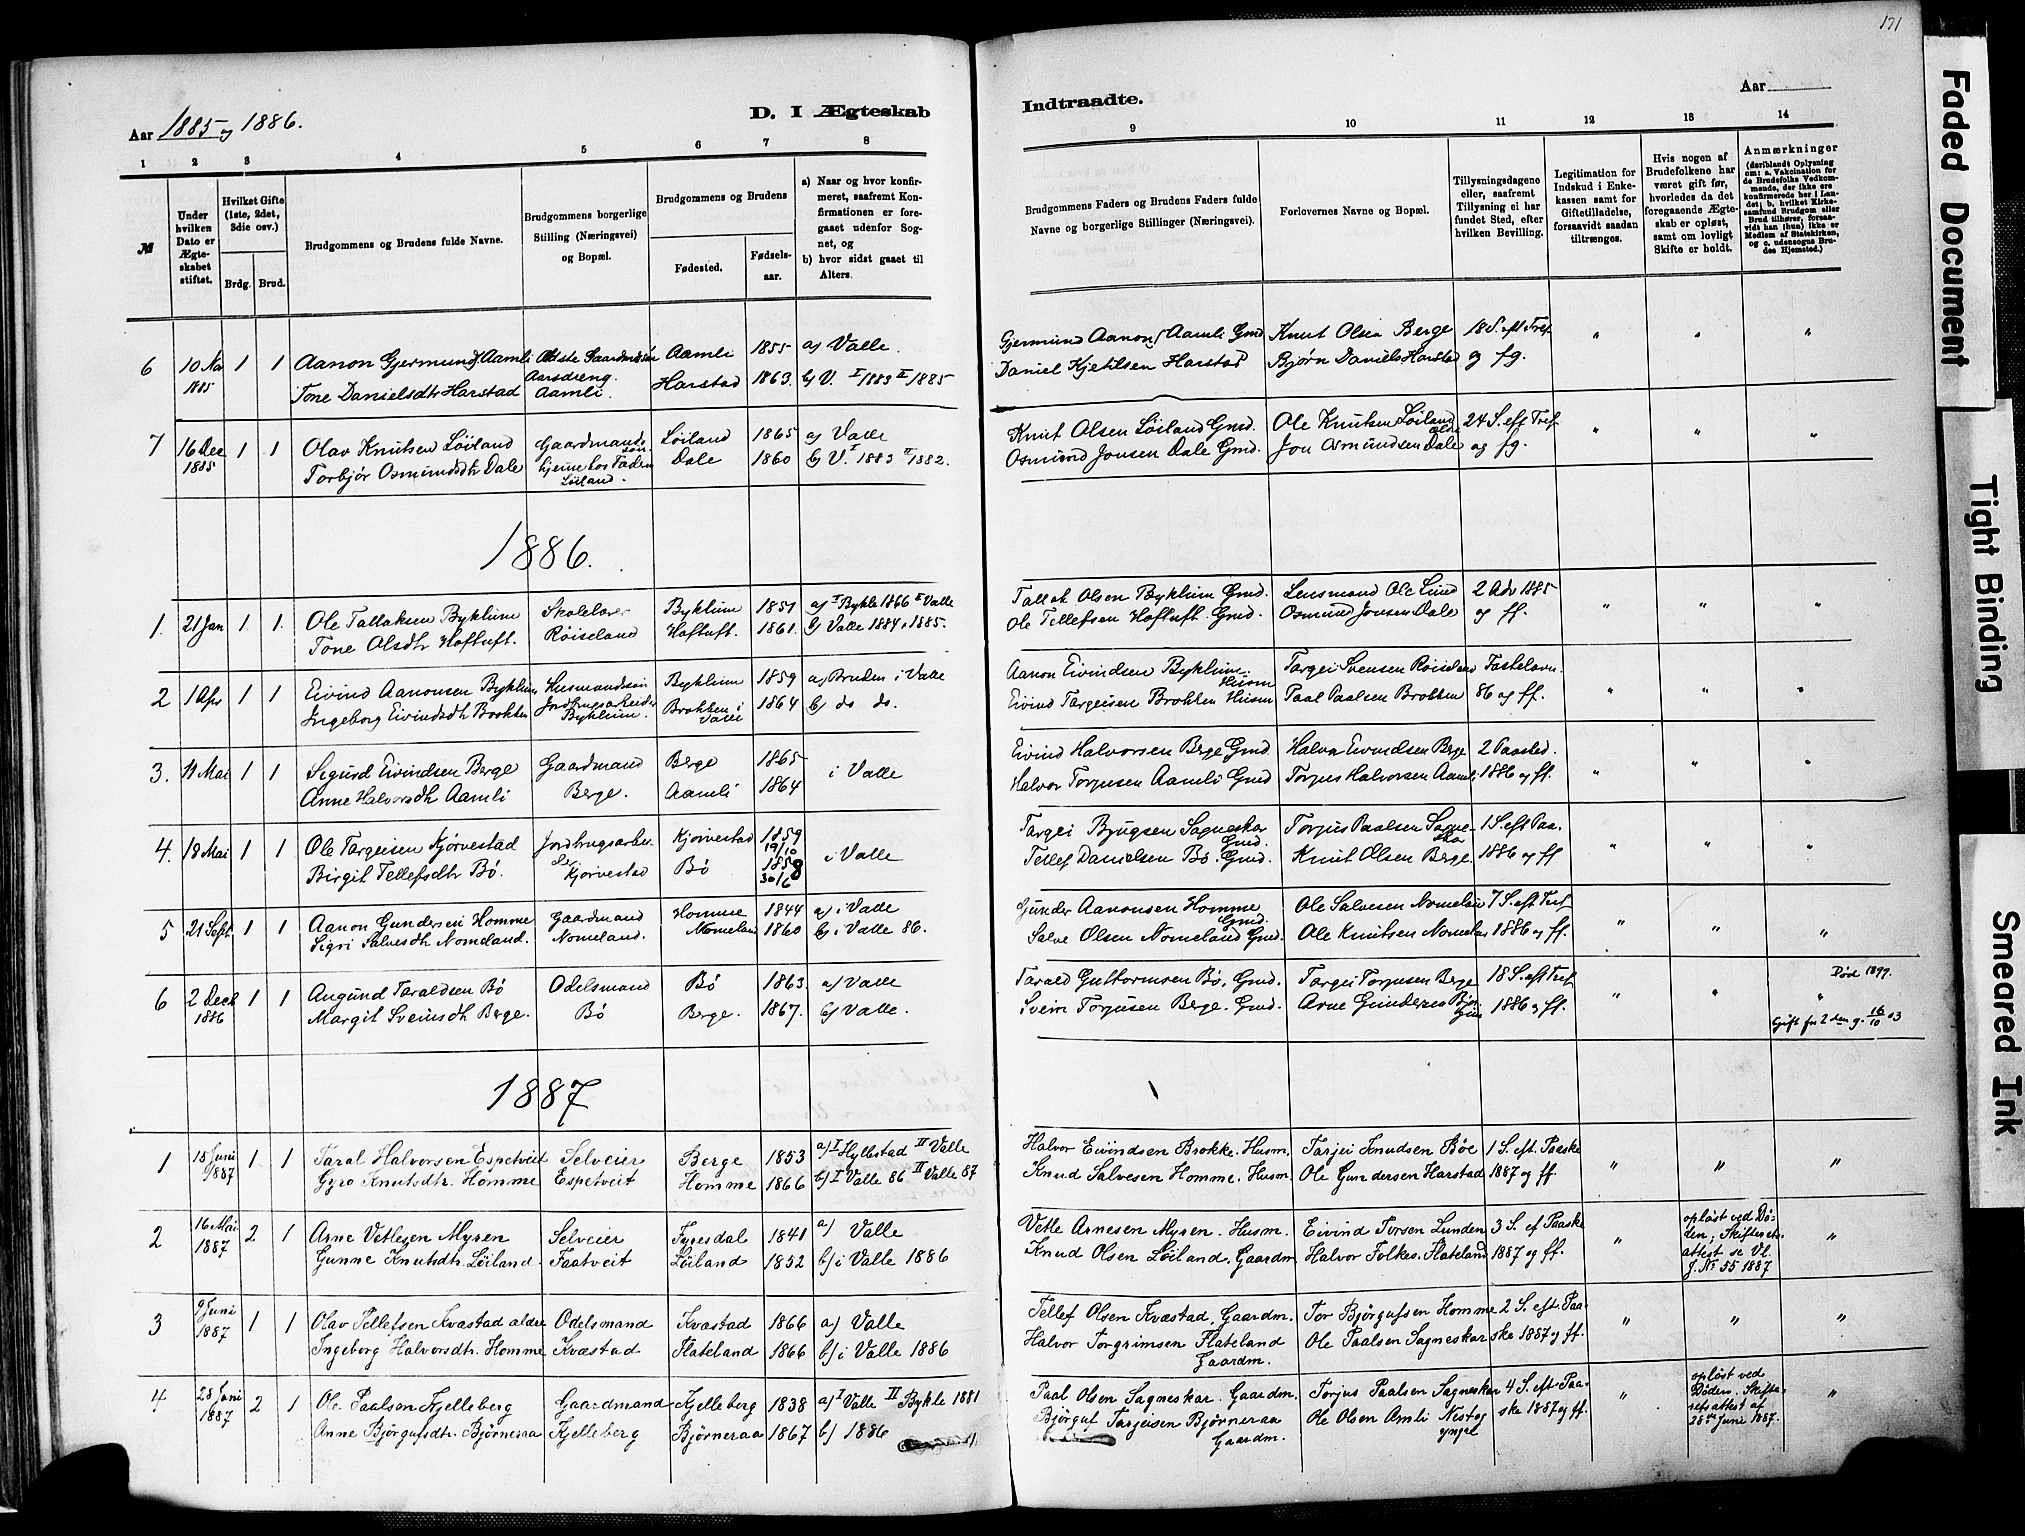 171
Aar 1885 og 1886.
D. I Ægteskab
Indtraadte.
Aar
1 2 3 4 5 6 7 8
9 10 11 12 13 14
№
Under hvilken Dato er Ægteskabet stiftet.
Hvilket Gifte (1ste, 2det, 3die osv.)
Brdg. Brud.
Brudgommens og Brudens fulde Navne.
Brudgommens borgerlige Stilling (Næringsvei) og Bopæl.
Brudgommens og Brudens
Fødested.
Fødselsaar.
a) Naar og hvor konfirmeret, saafremt Konfirmationen er foregaaet udenfor Sognet, og
b) hvor sidst gaaet til Alters.
Brudgommens Faders og Brudens Faders fulde Navne og borgerlige Stillinger (Næringsvei).
Forlovernes Navne og Bopæl.
Tillysningsdagene eller, saafremt Tillysning ei har fundet Sted, efter hvilken Bevilling.
Legitimation for Indskud i Enkekassen samt for Giftetilladelse, forsaavidt saadan tiltrænges.
Hvis nogen af Brudefolkene har været gift før, hvorledes da det foregaaende Ægteskab er opløst, samt om lovligt Skifte er holdt.
Anmærkninger (deriblandt Oplysning om: a. Vakcination for de Brudefolks Vedkommende, der ikke ere konfirmerede her i Landet; b. hvilket Kirkesamfund Brudgom eller Brud tilhører, forsaavidt han (hun) ikke er Medlem af Statskirken, og c. udensogns Brudes Hjemsted.)
6 10 Nov 1885 1 1 Aanon Gjermunds Aamli Aamli 1855 a) Valle. Gjermund Aanons Aamli Gmd Knut Olsen Berge 18 S. eft Tref " " "
Tone Danielsdtr Harstad Aarsdreng. Aamli. Harstad 1863. b) V. I 1883 II 1885 Daniel Kjetilsen Harstad Bjørn Daniels Harstad og fg.
7 16 Dec 1885 1 1 Olav Knutsen Løiland Gaardmands søn Løiland 1865 a) Valle Knut Olsen Løiland Gmd. Ole Knutsen Løiland 24 S. eft Tref " " "
Torbjør Osmundsdtr Dale hjeme hos Faderen Løiland. Dale 1860 b) V. I 1883 II 1882. Osmund Jonsen Dale Gmd. Jon Osmundsen Dale og fg.
1886.
1. 21 Jan 1. 1. Ole Tallaksen Byklum Skolelærer Byklum 1851 a) I Bykle 1866 II Valle Tallak Olsen Byklum Gmd. Lensmand Ole Lund 2 Adv 1885 " " "
Tone Olsdtr Hoftuft. Røiseland Hoftuft. 1861. b) Valle 1884 & 1885. Ole Tellefsen Hoftuft. Gmd. Osmund Jonsen Dale og ff.
2 1 Apr 1 1 Eivind Aanonsen Byklum Husmandsøn Byklum 1859 a) Bruden i Valle Aanon Eivindsen Byklum. Husm Targei Svensen Røiseland Fastelavn " " "
Ingeborg Eivindsdtr Brokken Jordbrugsarbeider Byklum. Brokken i Valle 1864 b) do do. Eivind Targeisen Brokken Husm Paal Paalsen Brokken 86 og ff.
3. 11 Mai 1 1 Sigurd Eivindsen Berge Gaardmand Berge 1865 i Valle Eivind Halvorsen Berge Gmd. Halvor Eivindsen Berge 2 Paasted. " " "
Anne Halvorsdtr Aamli Berge. Aamli 1864 Halvor Torjusen Aamli Gmd Torjus Halvorsen Aamli 1886 og ff.
4. 18 Mai 1 1 Ole Targeisen Kjørvestad Jordbrugsarbeider Kjørvestad 1859 19/10 i Valle Targei Bjugsen Sagneskar Gmd. Torjus Paalsen Sagneskar 1 S. eft Paa. " " "
Birgit Tellefsdtr Bø. Kjørvestad Bø 1858 30/6 Tellef Danielsen Bø. Gmd. Knut Olsen Berge. 1886 og ff
5 21 Sept. 1 1 Aanon Gundersen Homme Gaardmand Homme 1844 a) i Valle Gunder Aanonsen Homme Gmd. Ole Salvesen Nomeland 7 S. eft Tref " " "
Sigri Salvesdtr Nomeland. Nomeland. Nomeland 1860 b) i Valle 86. Salve Olsen Nomeland Gmd. Ole Knutsen Nomeland 1886 og ff.
6 2 Dec 1886 1 1 Augund Taraldsen Bø Odelsmand Bø 1863. a) Valle Tarald Guttormsen Bø, Gmd. Targei Torjusen Berge 18 S. eft Tref " " Død 1899. "
Margit Sveinsdtr Berge. Bø Berge. 1867. b) Valle. Svein Torjusen Berge. Gmd. Arne Gundersen 1886 og ff. Gift for 2den g. 16/10 03
1887
1 18 Juni 1887 1 1 Taral Halvorsen Espetveit Selveier Berge 1853 a) I Hyllestad II Valle Halvor Eivindsen Brokke. Husm. Tarjei Knudsen Bøe 1 S. eft. Paaske " " "
Gyro Knutsdtr. Homme Espetveit Homme 1866 b) I Valle 86 II Valle 87 Knud Salvesen Homme. Husm. Ole Gundersen Harstad 1887 og ff.
2 16 Mai 1887 2 1 Arne Vetlesen Myren Selveier Fyresdal 1841 a) Valle Vetle Arnesen Myren. Husm. Eivind Torsen Lunden 3 S. ef Paaske " opløst ved Døden; Skifterets attest se Vl. J. No 55 1887. "
Gunne Knutsdtr. Løiland. Taatveit Løiland 1852 b) i Valle 1886 Knud Olsen Løiland. Gaardm Halvor Folkes. Flateland 1887 og ff.
3 9 Juni 1887 1 1 Olav Tellefsen Kvæstad aldre Odelsmand Kvæstad 1866 a) Valle Tellef Olsen Kvæstad, Gaardm. Tor Bjørgufsen Homme 2 S. eft. Paa- " " "
Ingeborg Halvorsdtr. Homme Kvæstad Flateland 1866 b) i Valle 1886 Halvor Torgrimsen Flateland Gaardm. Ole Paalsen Sagneskar ske 1887 og ff.
4 28 Juni 1887 2 1 Ole Paalson Kjelleberg Gaardmand Kjelleberg 1838 a) I Valle II Bykle 1881 Paal Olsen Sagneskar. Gaardm. Torjus Paalsen Sagneskar 4 S. eft. Paa- " opløst ved Døden. Skifteretsattest af 28de Juni 1887. "
Anne Bjørgufsdtr. Bjørneraa Kjelleberg Bjørneraa 1867 b) 1886 Bjørguf Tarjeisen Bjørneraa Gaardm. Ole Olsen Amli Nestog yngre ske 1887 og ff.
Faded Document
Tight Binding
Smeared Ink